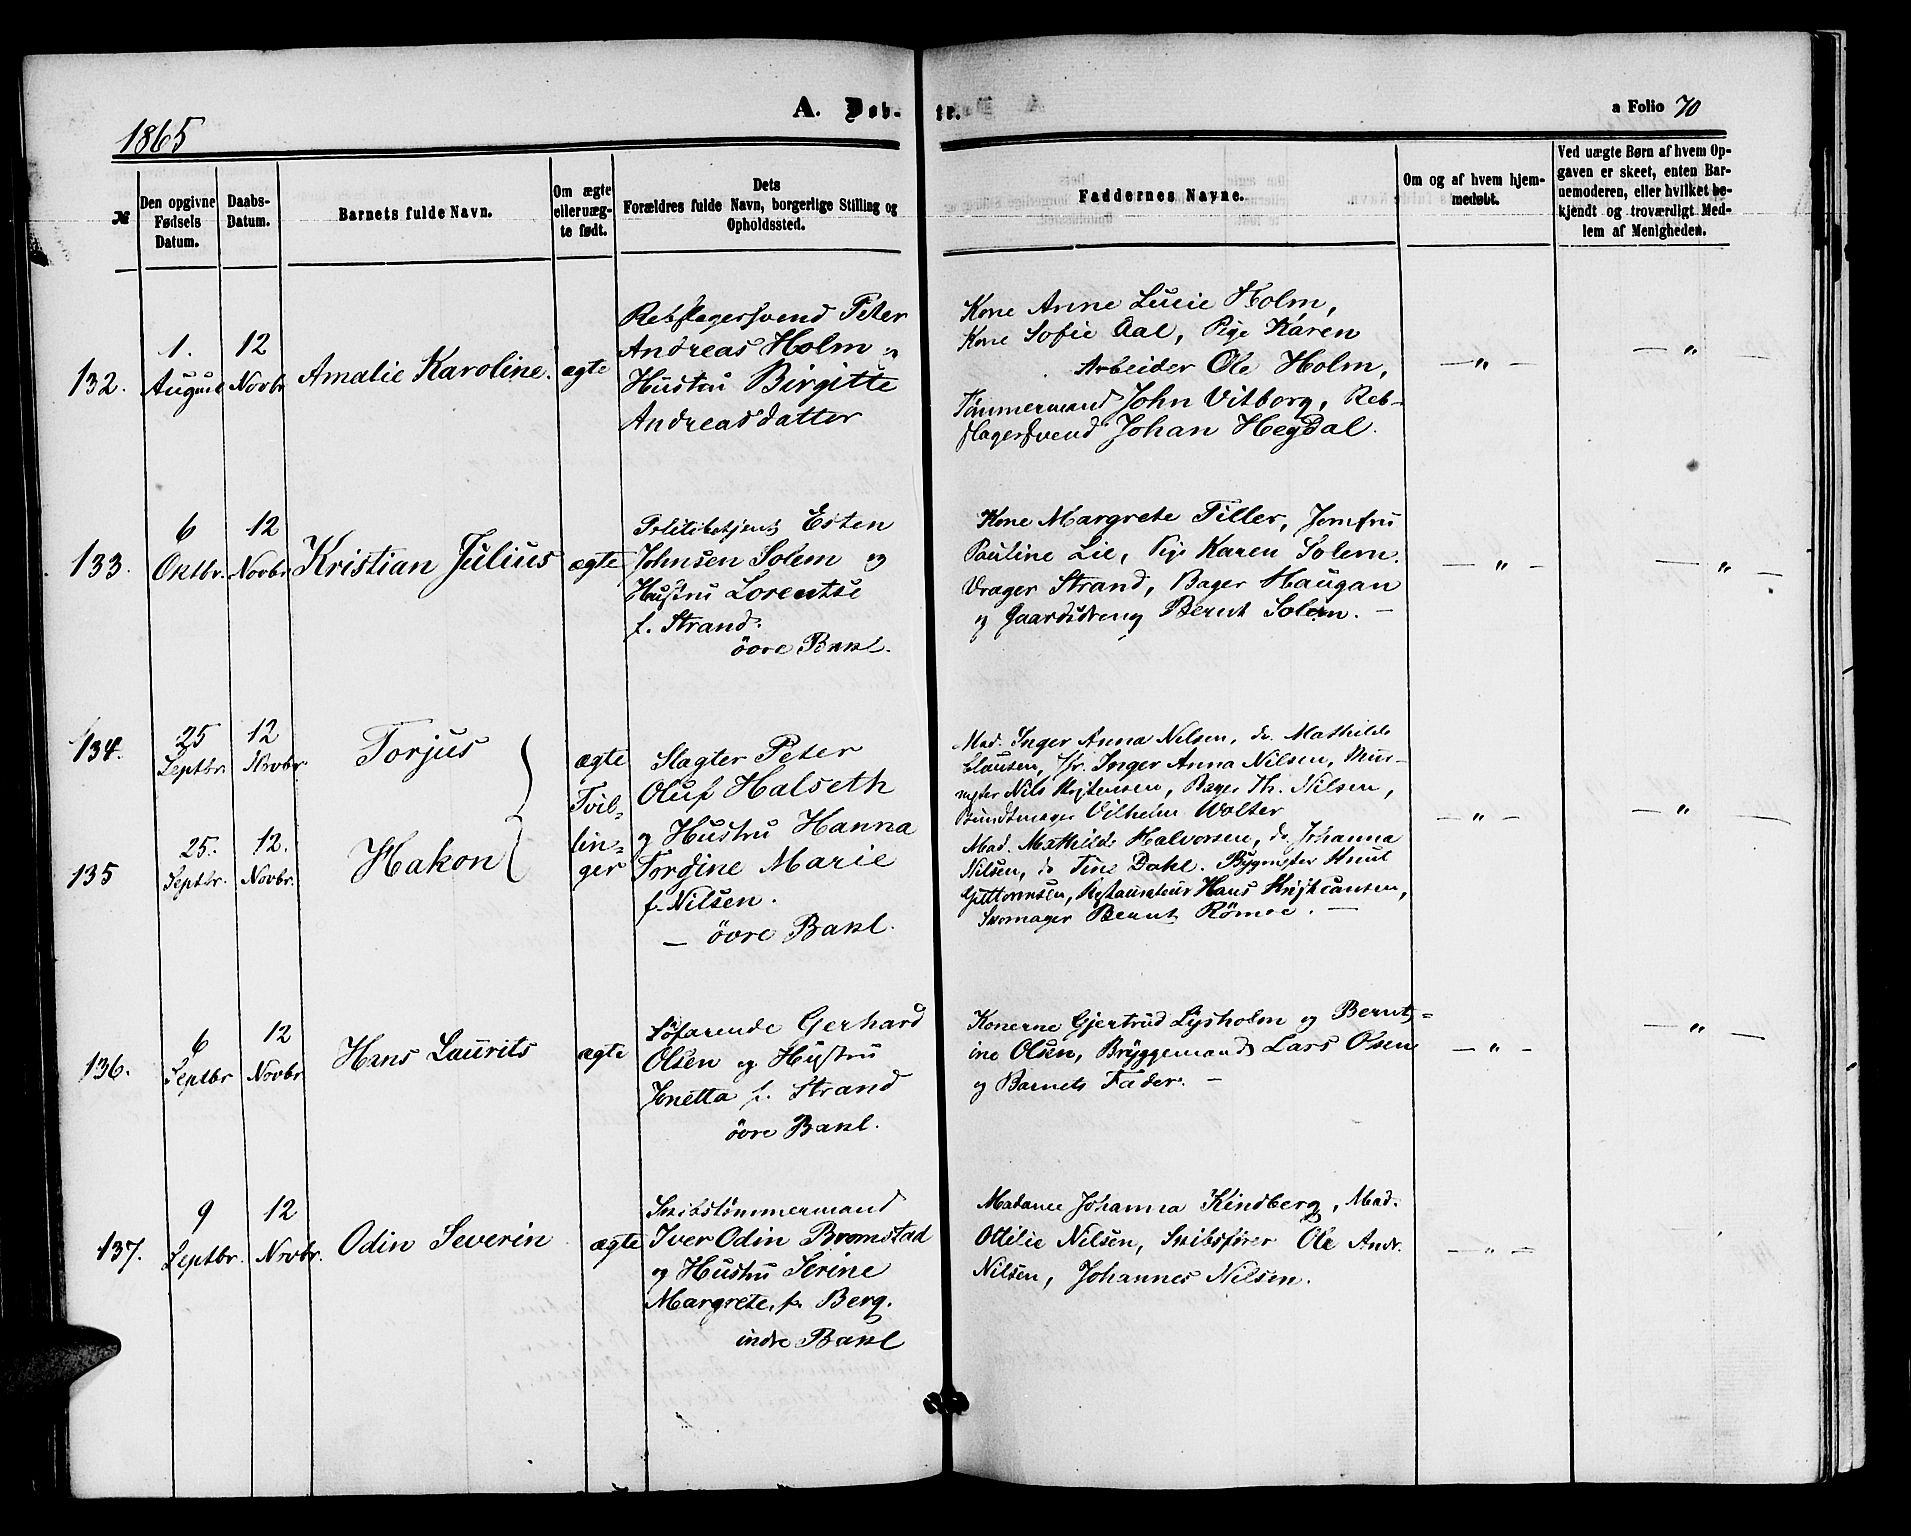 1865
A. Døb-
tr.
a Folio 70
№
Den opgivne Fødsels Datum.
Daabs-Datum.
Barnets fulde Navn.
Om ægte eller uæg-te født.
Dets Forældres fulde Navn, borgerlige Stilling og Opholdssted.
Faddernes Navne.
Om og af hvem hjem-medøbt.
Ved uægte Børn af hvem Op-gaven er skeet, enten Bar-nemoderen, eller hvilket be-kjendt og troværdigt Med-lem af Menigheden.
132.
1. August
12 Novbr
Amalie Karoline.
ægte
Rebslagersvend Peter
Andreas Holm og
Hustru Birgitte
Andreasdatter
Kone Anne Lucie Holm,
Kone Sofie Aal, Pige Karen
Arbeider Ole Holm,
Tømmermand John Vitborg, Reb-
slagersvend Johan Hegdal.
— " —
— " —
133.
6 Oktbr.
12 Novbr
Kristian Julius
ægte
Politibetjent Esten
Johnsen Solem og
Hustru Lorentse
f. Strand.
övre Bakl.
Kone Margrete Tiller, Jomfru
Pauline Lie, Pige Karen Solem.
Vrager Strand, Bager Haugan
og Gaardsdreng Bernt Solem. —
— " —
— " —
134.
25 Septbr.
12 Novbr
Torjus
135
25. Septbr.
12. Novbr.
Hakon
ægte
Tvil-
lin-
ger
Slagter Peter
Oluf Halseth
og Hustru Hanna
Tordine Marie
f. Nilsen.
— övre Bakl.
Mad. Inger Anna Nilsen, do Mathilde
Clausen, Jfr. Inger Anna Nilsen, Mur-
mester Nils Kristensen, Bager Th. Nilsen,
Bundtmager Vilhelm Wolter
Mad. Mathilde Halvorsen, do Johanna
Nilsen, do Tine Dahl. Bygmester Knut
Guttormsen, Restauratør Hans Kristiansen,
Skomager Bernt Römoe. —
— " —
— " —
136.
6 Septbr
12 Novbr
Hans Laurits
ægte
Söfarende Gerhard
Olsen og Hustru
Jonetta f. Strand
övre Bakl.
Konerne Gjertrud Lysholm og Bernt-
ine Olsen, Bryggemand Lars Olsen
og Barnets Fader. —
— " —
— " —
137.
9 Septbr.
12 Novbr.
Odin Severin
ægte
Skibstömmermand
Iver Odin Bromstad
og Hustru Serine
Margrete, f. Berg.
indre Bakl
Madame Johanna Kindberg, Mad.
Ottilie Nilsen, Skibsfører Ole Andr.
Nilsen, Johannes Nilsen.
— " —